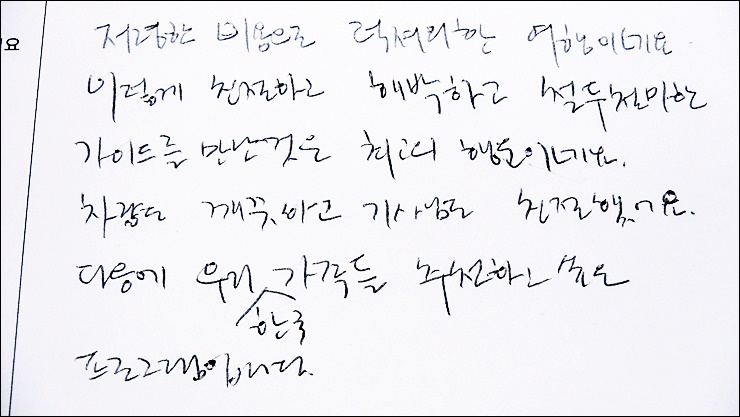 요
저렴한 비용으로 럭셔리한 여행이네요.
이렇게 친절하고 해박하고 철두철미한
가이드를 만난것은 최고의 행운이네요.
차량도 깨끗하고 기사님도 친절했어요.
다음에 우리 가족들 추천하고 싶은
한국
프로그램입니다.